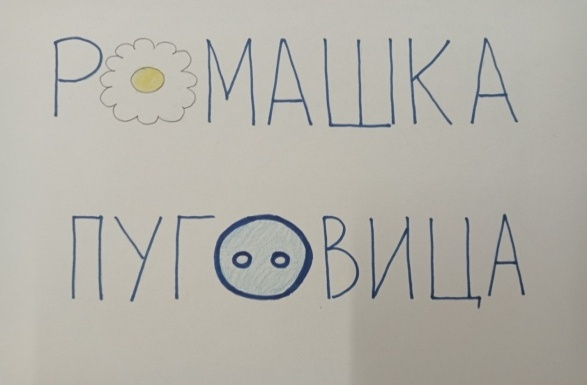 РОМАШКА
ПУГОВИЦА